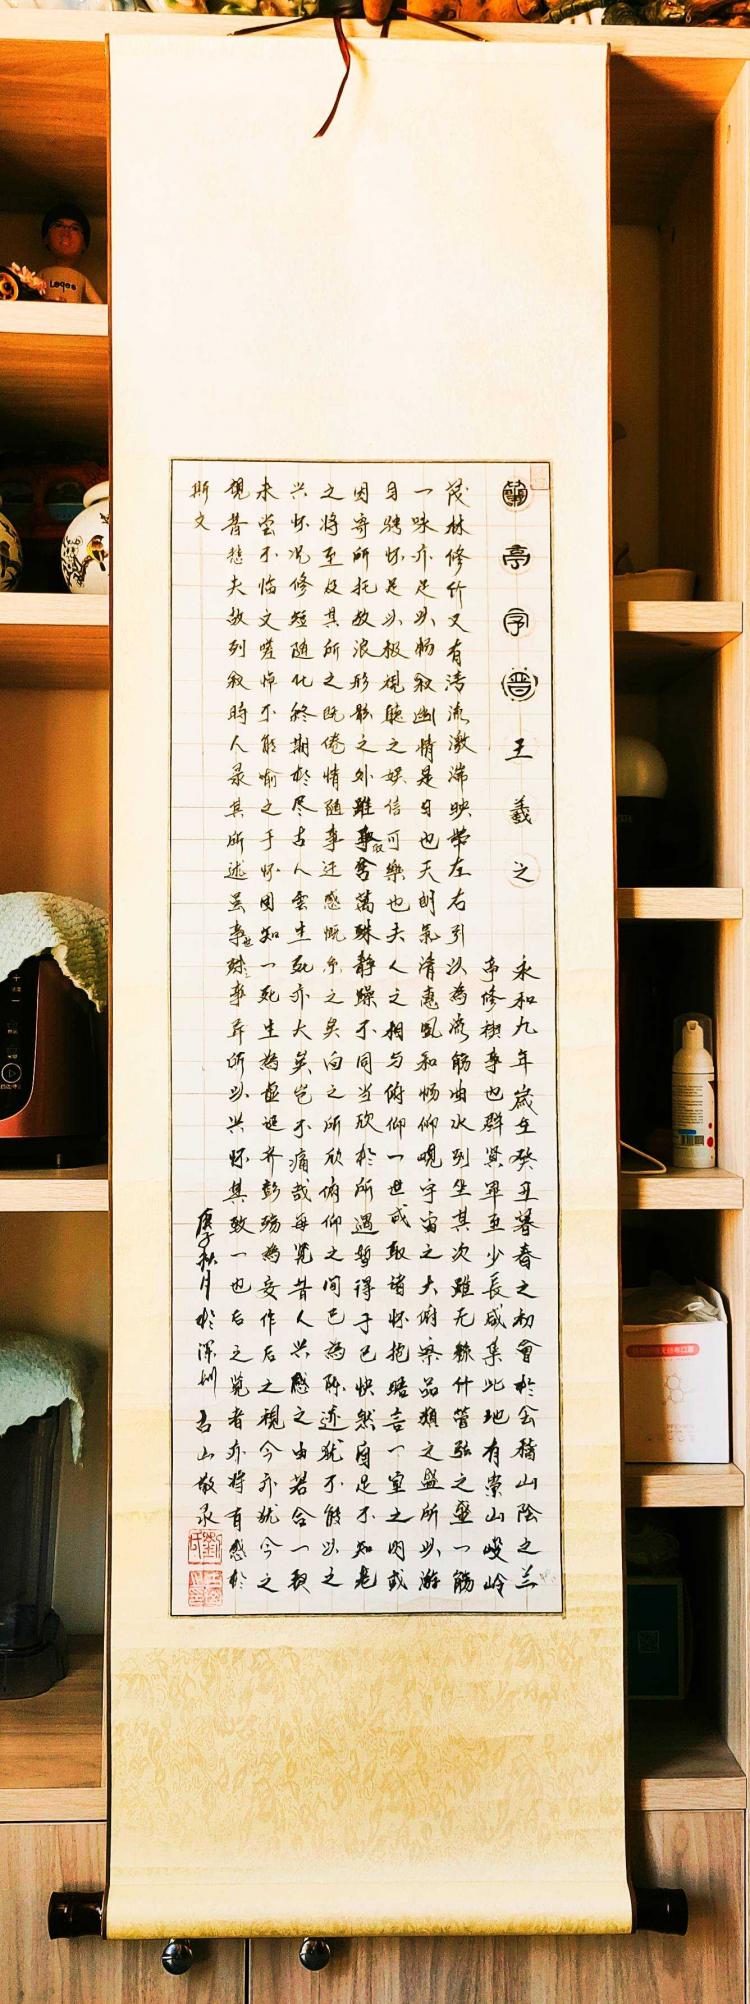 蘭亭序晋王羲之
永和九年歲在癸丑暮春之初會於会稽山陰之兰
亭修禊事也群賢畢至少長咸集此地有崇山峻岭
茂林修竹又有清流激湍映帶左右引以為流觞曲水列坐其次雖无絲竹管弦之盛一觞
一咏亦足以畅叙幽情是日也天朗氣清惠風和畅仰觀宇宙之大俯察品類之盛所以游
目骋怀足以极視聽之娱信可樂也夫人之相与俯仰一世或取诸怀抱晤言一室之内或
因寄所托放浪形骸之外雖取舍萬殊静躁不同当欣於所遇暫得于己快然自足不知老
之将至及其所之既倦情随事迁感慨系之矣向之所欣俯仰之间已為陈迹犹不能以之
兴怀况修短随化终期於尽古人雲生死亦大矣岂不痛哉每览昔人兴感之由若合一契
未尝不临文嗟悼不能喻之于怀固知一死生為虚诞齐彭殇為妄作后之視今亦犹今之
視昔悲夫故列叙時人录其所述虽事也殊事异所以兴怀其致一也后之览者亦将有感於
斯文
庚子秋月於深圳 古山敬录